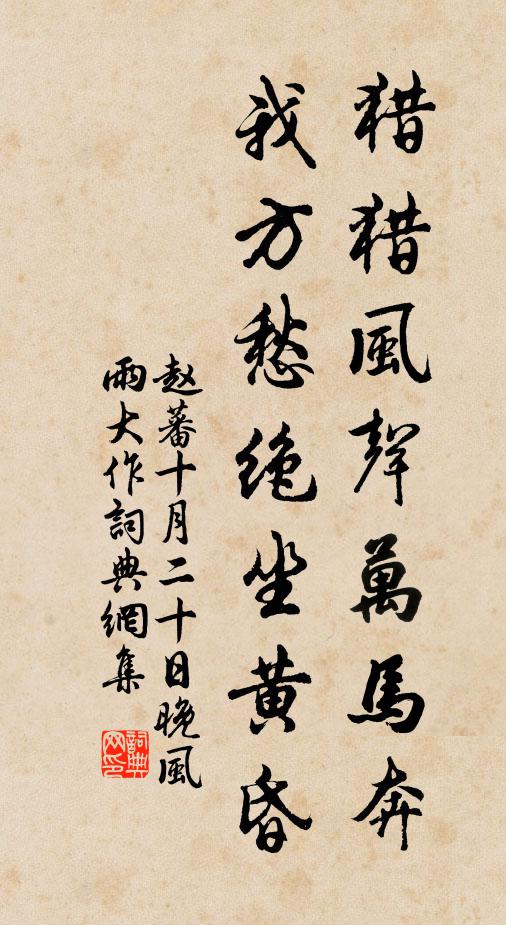 猎猎風聲萬馬奔
我方愁绝坐黄昏
赵蕃十月二十日晚風
雨大作詞典網集
詞典
网印